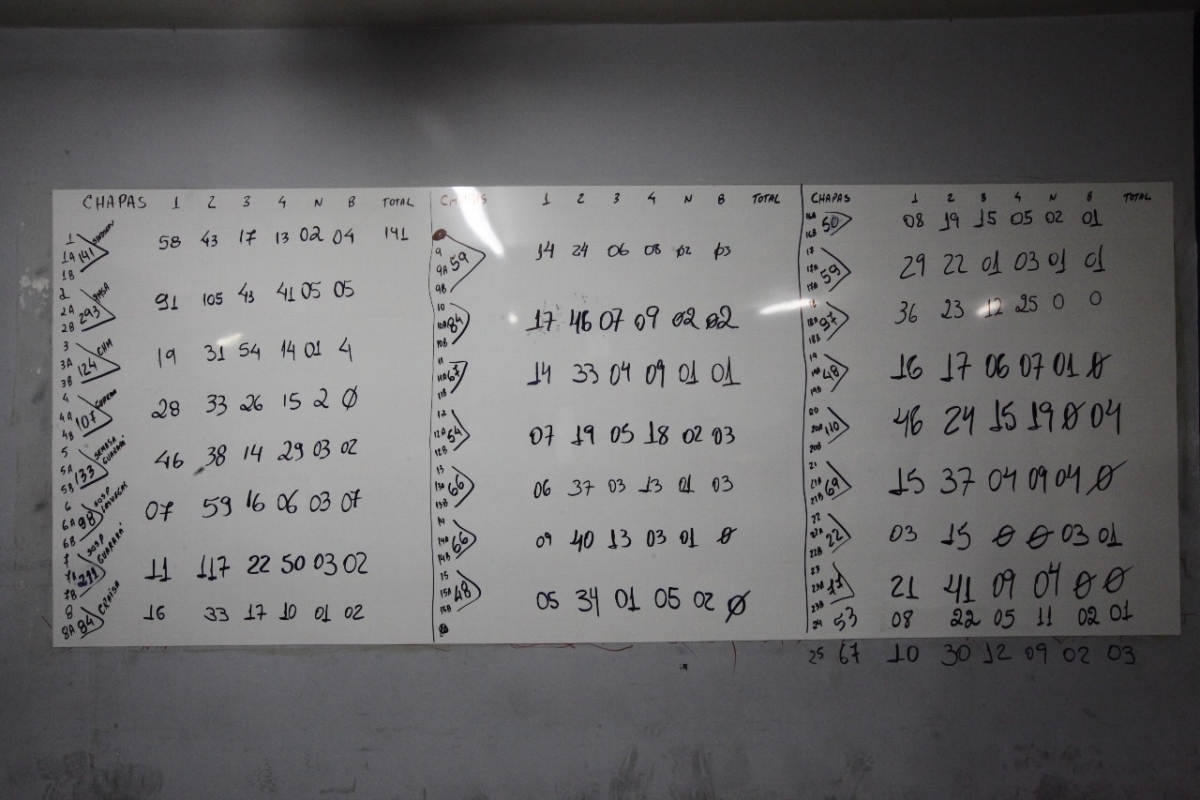 CHAPAS 1 2 3 4 N B TOTAL
1
1A 141 58 43 17 13 02 04 141
1B
2
2A 293 91 105 43 41 05 05
2B
3 CHM
3A 124 19 31 54 14 01 4
3B
4
4A 107 28 33 26 15 2 Ø
4B
5 SEMASA
5A 133 GUARARÁ 46 38 14 29 03 02
5B
6 ROSP
6A 98 07 59 16 06 03 07
6B
7 ROSP
7A 211 GUARARÁ 11 117 22 50 03 02
7B
8 CRAISA
8A 84 16 33 17 10 01 02
CHAPAS 1 2 3 4 N B TOTAL
9
9A 59 14 24 06 08 02 03
9B
10
10A 84 17 46 07 09 02 02
10B
11
11A 67 14 33 04 09 01 01
11B
12
12A 54 07 19 05 18 02 03
12B
13
13A 66 06 37 03 13 01 03
13B
14
14A 66 09 40 13 03 01 Ø
14B
15
15A 48 05 34 01 05 02 Ø
15B
CHAPAS 1 2 3 4 N B TOTAL
16A 50 08 19 15 05 02 01
16B
17
17A 59 29 22 01 03 01 01
18
18A 97 36 23 12 25 0 0
18B
19
19A 48 16 17 06 07 01 Ø
19B
20
20A 110 46 24 15 19 Ø 04
20B
21
21A 69 15 37 04 09 04 Ø
21B
22
22A 22 03 15 Ø Ø 03 01
22B
23
23A 21 41 09 04 Ø Ø
24 53 08 22 05 11 02 01
25 67 10 30 12 09 02 03